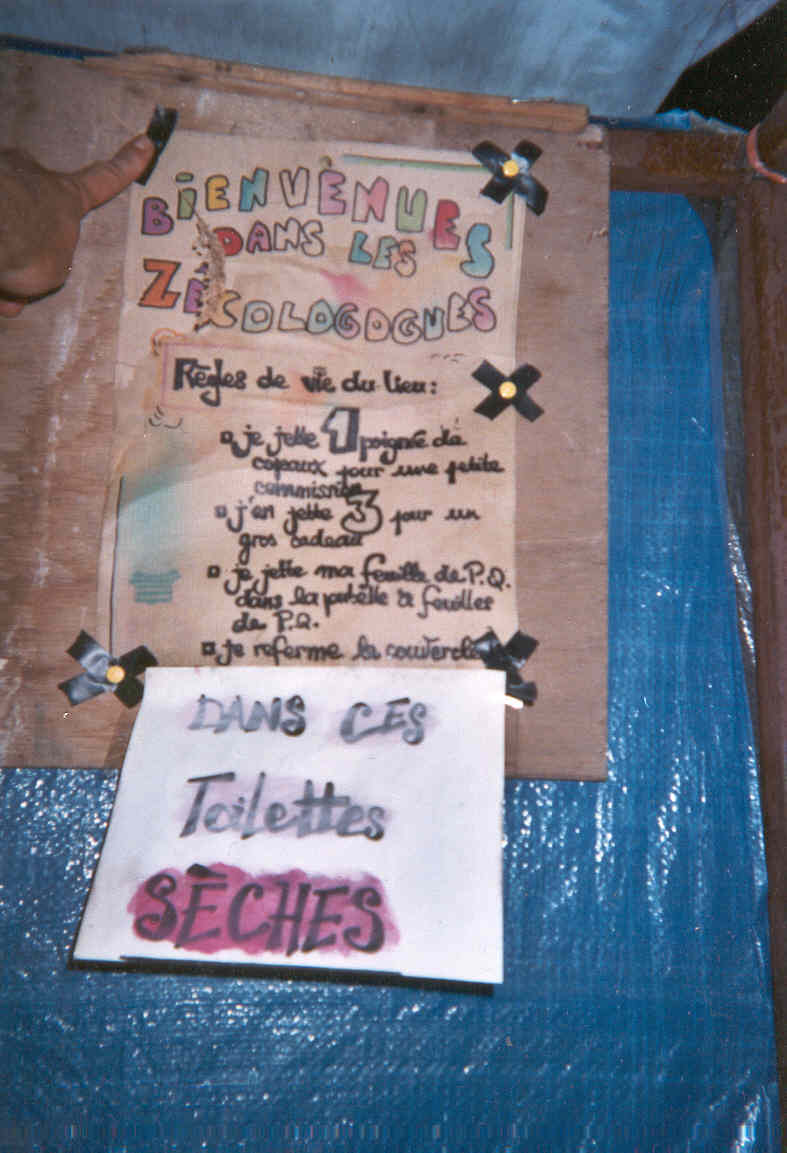 BIENVENUES
DANS LES
ZECOLOGOGUES
Règles de vie du lieu :
je jette 1 poignée de
copeaux pour une petite
commission
j'en jette 3 pour un
gros cadeau
je jette ma feuille de P.Q.
dans la poubelle à feuilles
de P.Q.
je referme le couvercle
DANS CES
Toilettes
SÈCHES